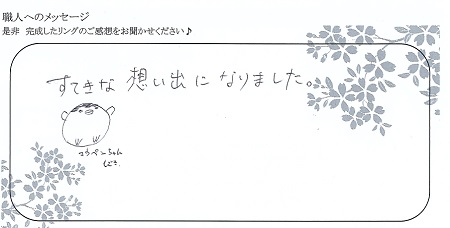 職人へのメッセージ
是非 完成したリングのご感想をお聞かせください♪
すてきな 想い出に なりました。
コウペンちゃん